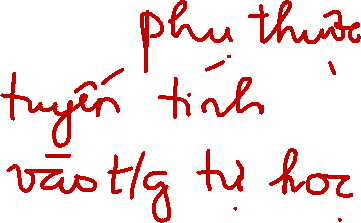 phụ thuộc
tuyến tính
vào t/g tự học